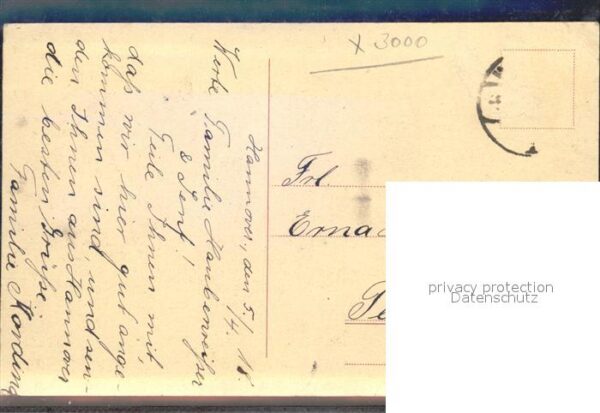 Hannover, den 5./4. 18
Werte Familie Haubenreißer
& Senf!
Teile Ihnen mit,
daß wir hier gut ange-
kommen sind, und sen-
den Ihnen aus Hannover
die besten Grüße.
Familie Nording
x 3000
Frl.
Erna
privacy protection
Datenschutz